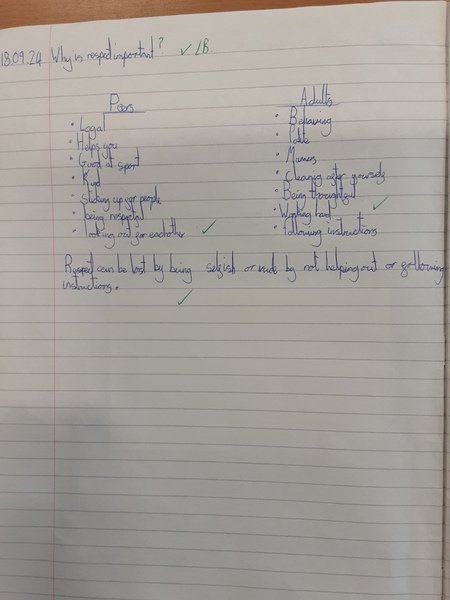 18.09.24 Why is respect important? ✓ LB.
Peers
• Logal
• Helps you
• Good at sport
• Kind
• Sticking up for people
• being respectful
• looking out for eachother ✓
Adults
• Behaving
• Polite
• Manners
• Cleaning after yourself
• Being thoughtful
• Working hard ✓
• following instructions
Respect can be lost by being selfish or rude by not helping out or following
instructions.
✓